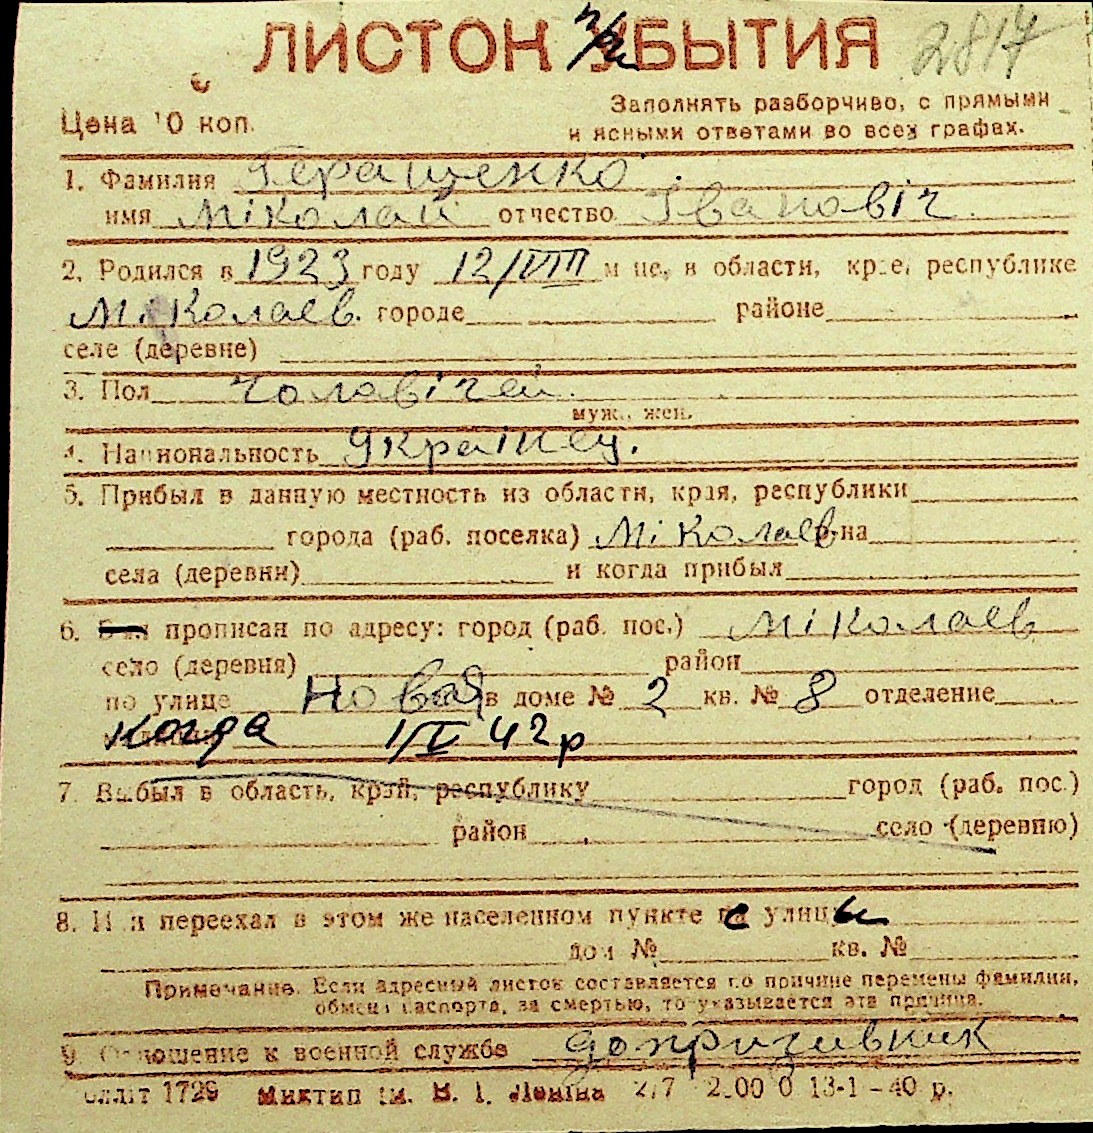 ЛИСТОК при УБЫТИЯ 2817
Цена 10 коп. Заполнять разборчиво, с прямыми
и ясными ответами во всех графах.
1. Фамилия Геращенко
имя Міколай отчество Івановіч
2. Родился в 1923 году 12/VIII м-це, в области, крае, республике
Міколаев. городе районе
село (деревне)
3. Пол чоловічей.
муж., жен.
4. Национальность Украінец.
5. Прибыл в данную местность из области, края, республики
города (раб. поселка) Міколаев р-на
села (деревни) и когда прибыл
6. Был прописан по адресу: город (раб. пос.) Міколаев
село (деревня) район
по улице Новая в доме № 2 кв. № 8 отделение
милиции когда 1/V 42 р
7. Выбыл в область, край, республику город (раб. пос.)
район село (деревню)
8. Или переехал в этом же населенном пункте с улицы
дом № кв. №
Примечание. Если адресный листок составляется по причине перемены фамилии,
обмена паспорта, за смертью, то указывается эта причина.
9. Отношение к военной службе допризивник
1729 Миктип ім. В. І. Леніна 13-1-40 р.